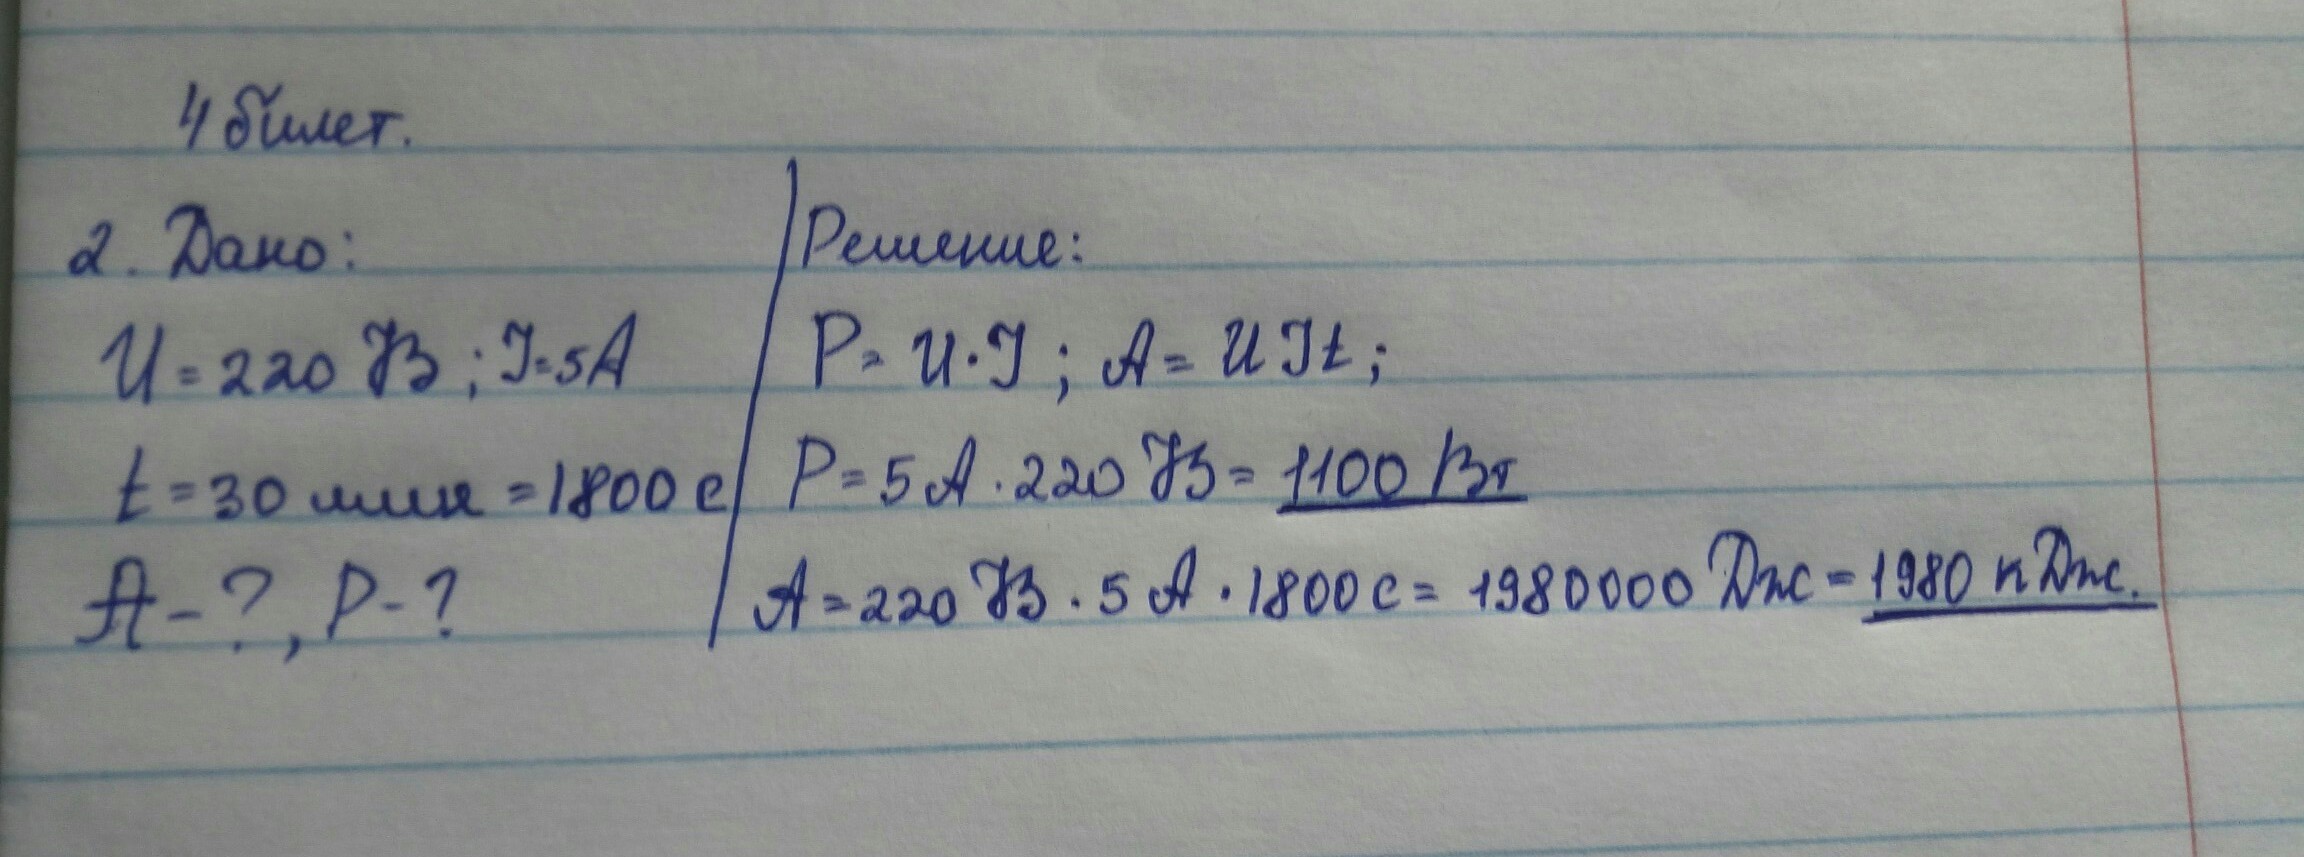 4 билет.
2. Дано:
U = 220 В ; I = 5А
t = 30 мин = 1800 с
А - ? , Р - ?
Решение:
P = U · I ; A = U I t ;
P = 5 А · 220 В = 1100 Вт
A = 220 В · 5 А · 1800 с = 1980000 Дж = 1980 кДж.